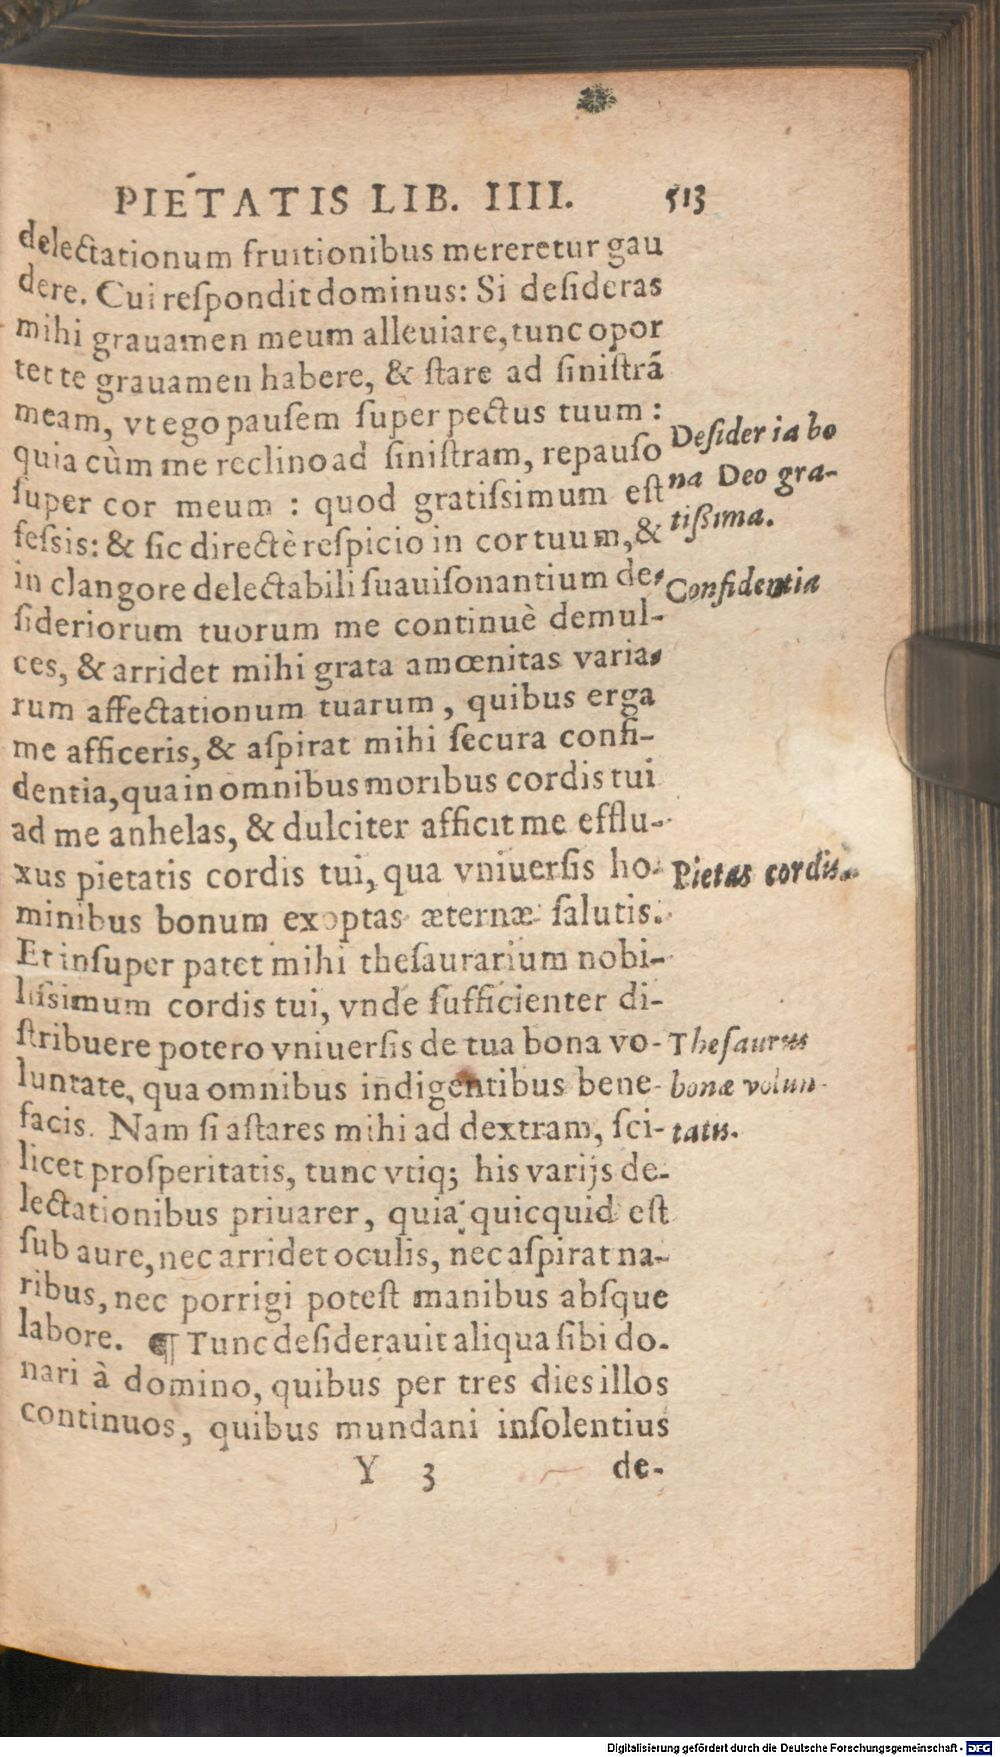 PIETATIS LIB. IIII. 513
delectationum fruitionibus mereretur gau
dere. Cui reſpondit dominus: Si deſideras
mihi grauamen meum alleuiare, tunc opor
tet te grauamen habere, & ſtare ad ſiniſtrã
meam, vt ego pauſem ſuper pectus tuum:
quia cùm me reclino ad ſiniſtram, repauſo
ſuper cor meum : quod gratiſsimum eſt
feſsis: & ſic directè reſpicio in cor tuum, &
in clangore delectabili ſuauiſonantium de-
ſideriorum tuorum me continuè demul-
ces, & arridet mihi grata amœnitas varia-
rum affectationum tuarum, quibus erga
me afficeris, & aſpirat mihi ſecura confi-
dentia, qua in omnibus moribus cordis tui
ad me anhelas, & dulciter afficit me efflu-
xus pietatis cordis tui, qua vniuerſis ho-
minibus bonum exoptas æternæ ſalutis.
Et inſuper patet mihi theſaurarium nobi-
liſsimum cordis tui, vnde ſufficienter di-
ſtribuere potero vniuerſis de tua bona vo-
luntate, qua omnibus indigentibus bene-
facis. Nam ſi aſtares mihi ad dextram, ſci-
licet proſperitatis, tunc vtiq; his varijs de-
lectationibus priuarer, quia quicquid eſt
ſub aure, nec arridet oculis, nec aſpirat na-
ribus, nec porrigi poteſt manibus abſque
labore. ¶ Tunc deſiderauit aliqua ſibi do-
nari à domino, quibus per tres dies illos
continuos, quibus mundani inſolentius
Y 3 de-
Deſideria bo
na Deo gra-
tißima.
Confidentia
Pietas cordis.
Theſaurus
bonæ volun-
tatis.
Digitalisierung gefördert durch die Deutsche Forschungsgemeinschaft - DFG